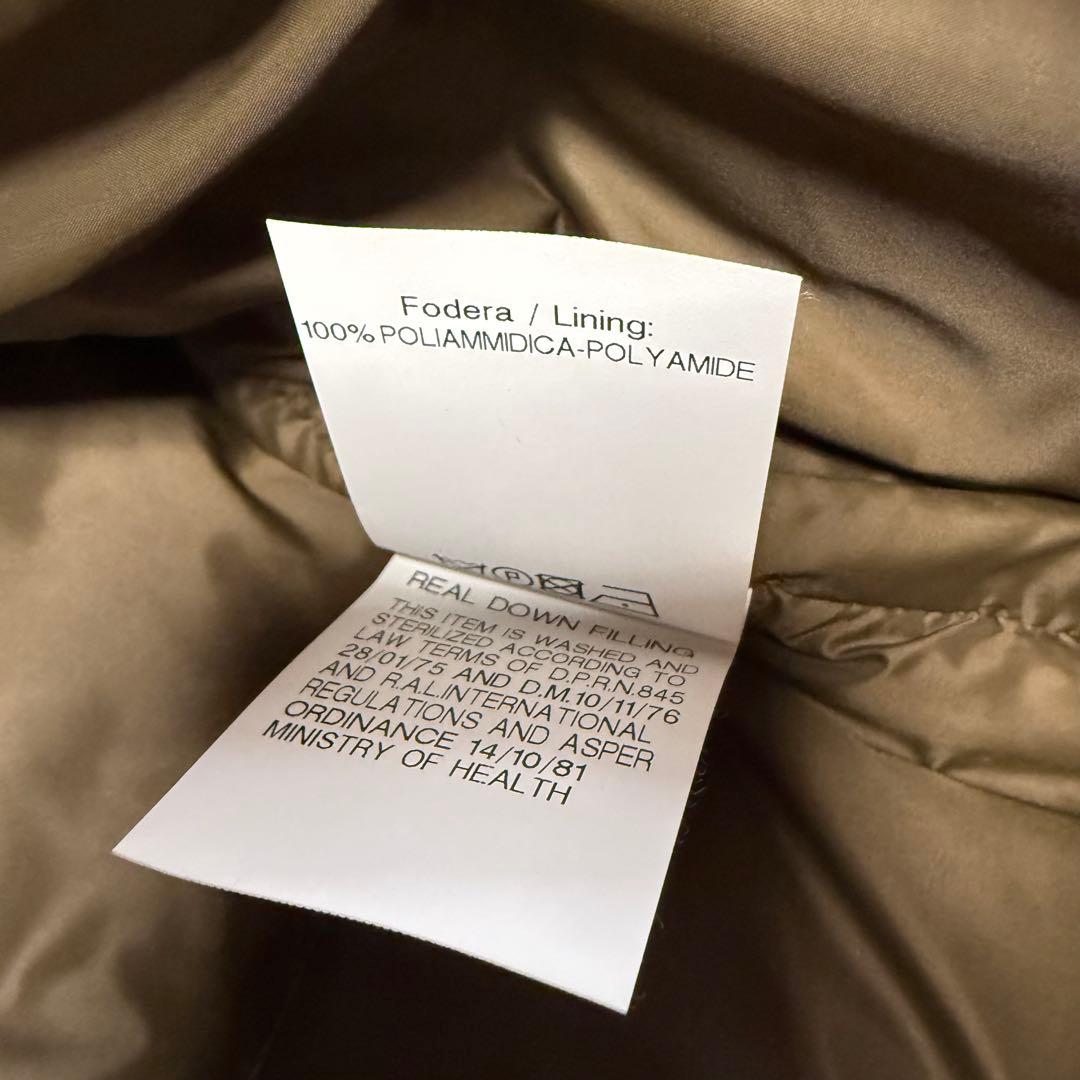 Fodera / Lining:
100% POLIAMMIDICA-POLYAMIDE
P
REAL DOWN FILLING
THIS ITEM IS WASHED AND
STERILIZED ACCORDING TO
LAW TERMS OF D.P.R.N.845
28/01/75 AND D.M.10/11/76
AND R.A.L.INTERNATIONAL
REGULATIONS AND ASPER
ORDINANCE 14/10/81
MINISTRY OF HEALTH